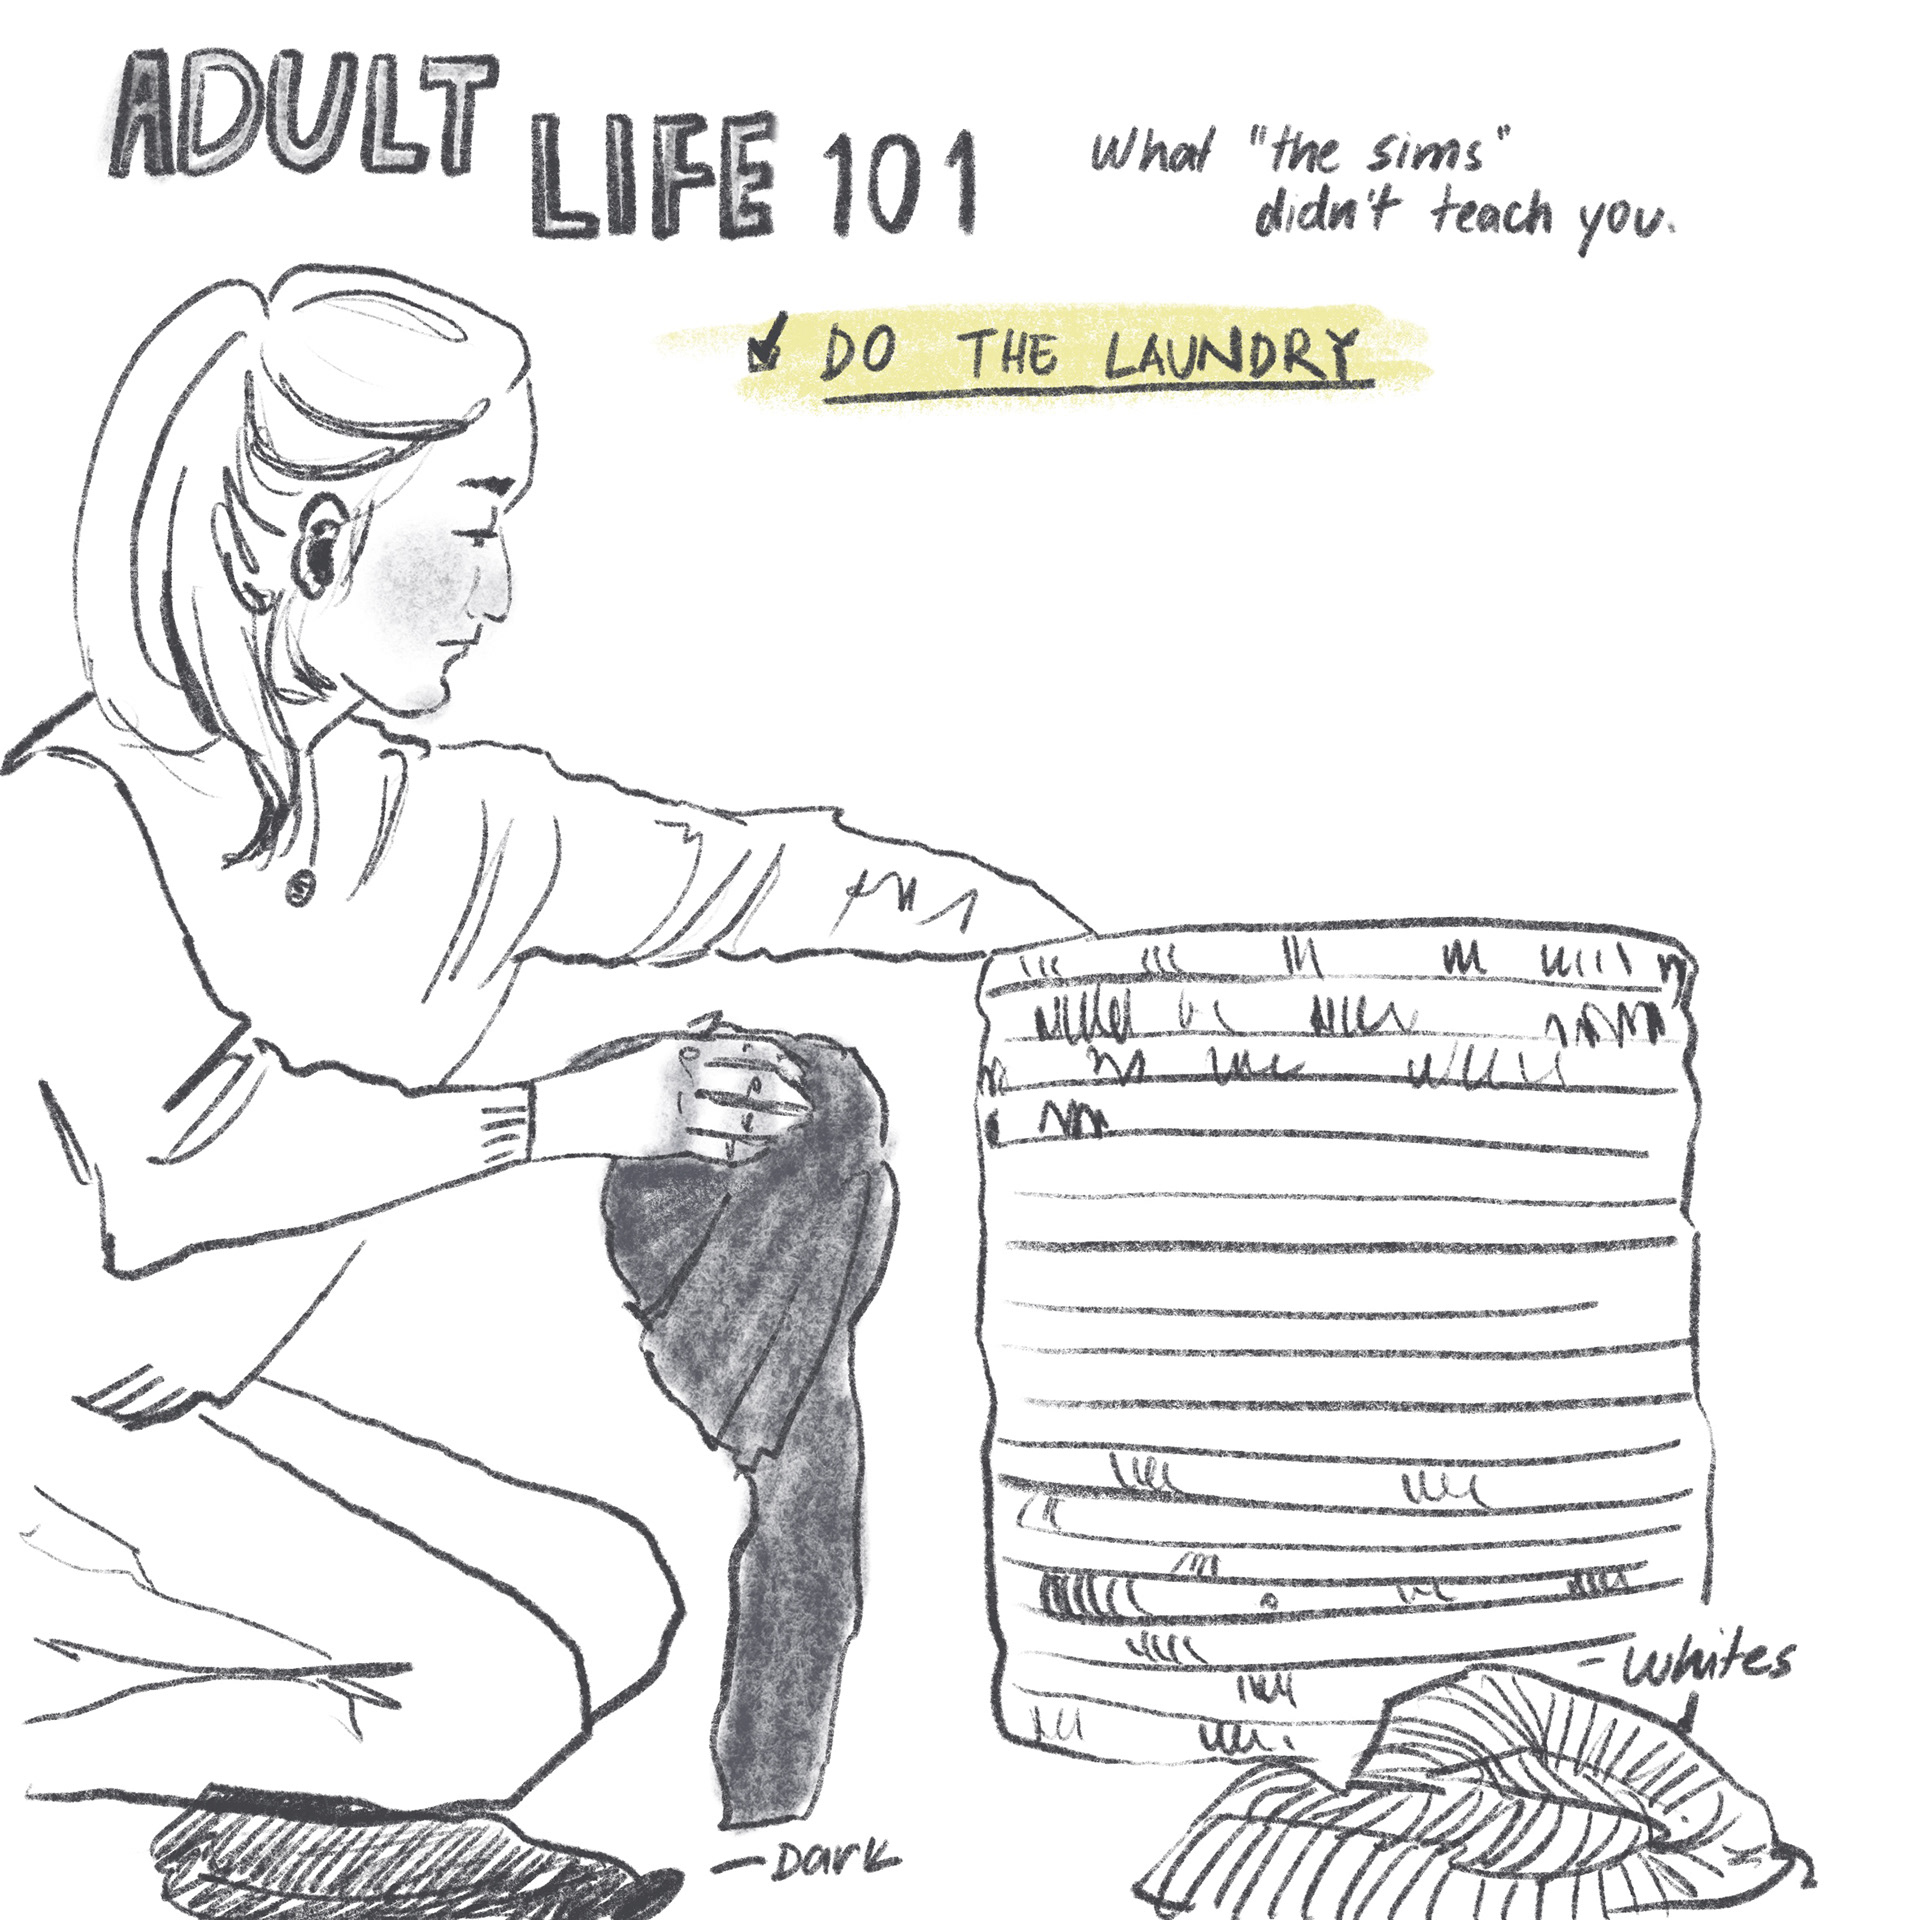 ADULT
LIFE 101
What "the sims"
didn't teach you.
DO THE LAUNDRY
- Whites
- Dark